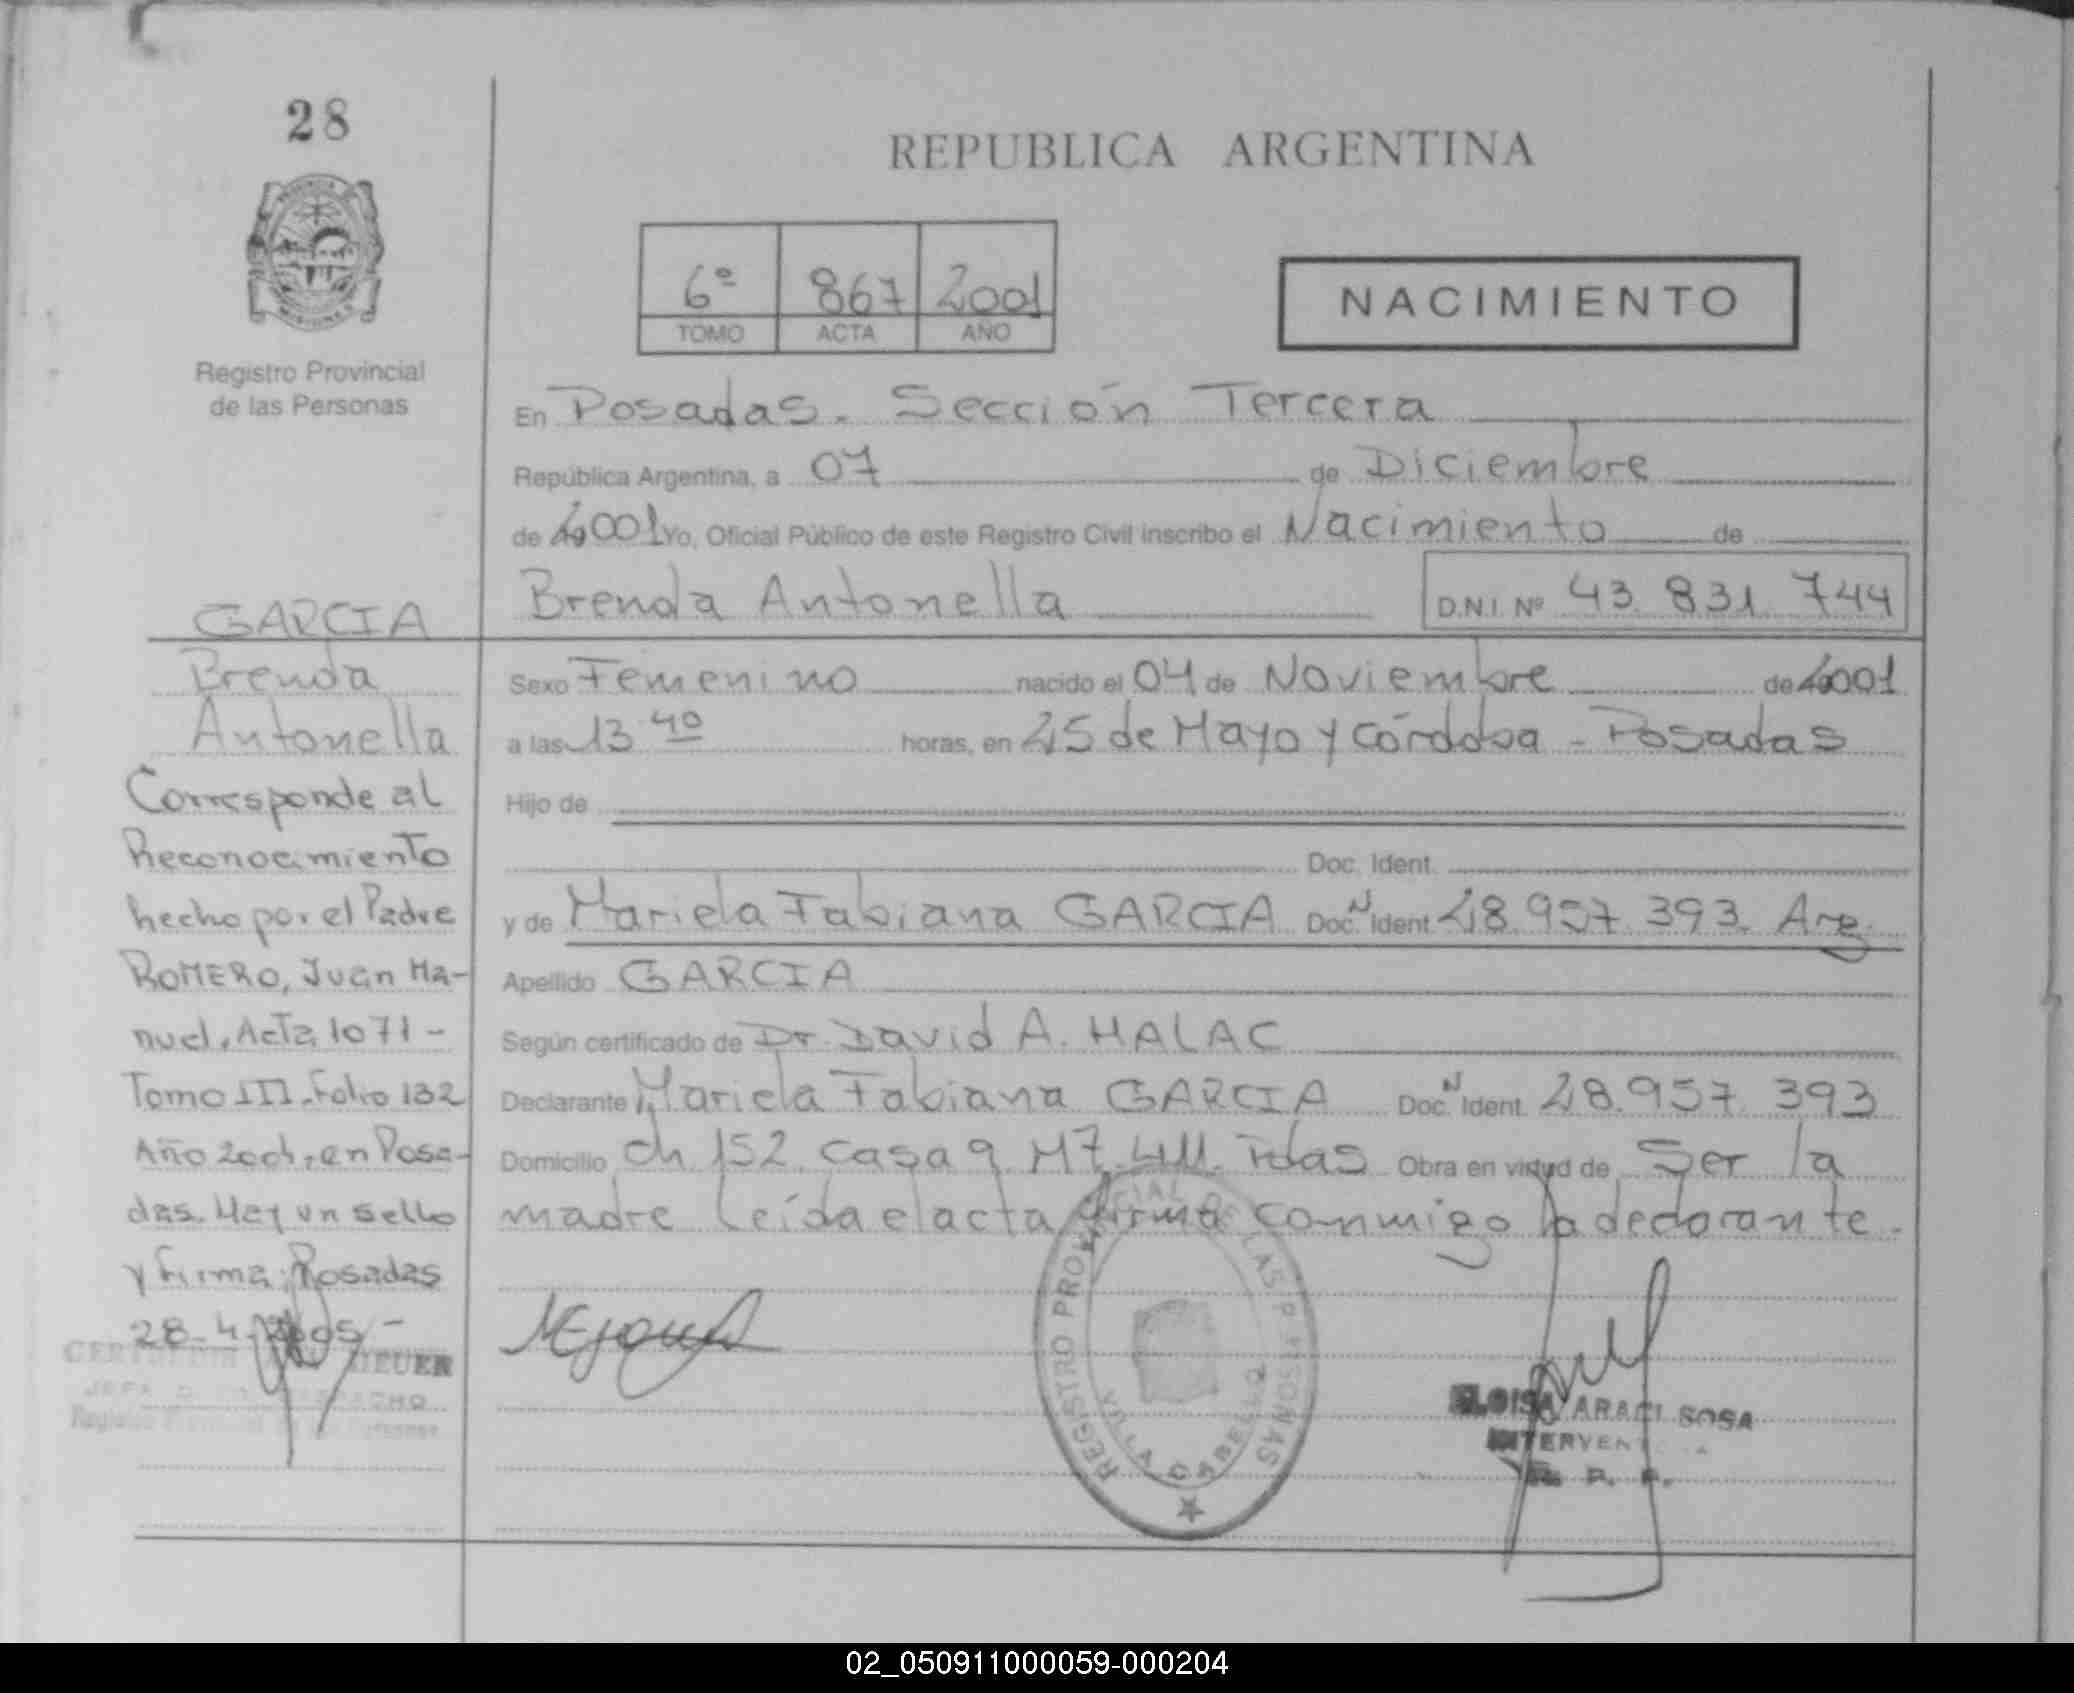 28
REPUBLICA ARGENTINA
6º 867 2001
TOMO ACTA AÑO
NACIMIENTO
Registro Provincial
de las Personas
En Posadas. Sección Tercera
República Argentina, a 07 de Diciembre
de 2001 Yo, Oficial Público de este Registro Civil inscribo el Nacimiento de
Brenda Antonella D.N.I. Nº 43 831 744
Sexo Femenino nacido el 04 de Noviembre de 2001
a las 13 40 horas, en 25 de Mayo y Córdoba - Posadas
Hijo de
Doc. Ident.
y de Mariela Fabiana GARCIA Doc. N Ident 28.957.393. Arg.
Apellido GARCIA
Según certificado de Dr. David A. HALAC
Declarante Mariela Fabiana GARCIA Doc. N Ident. 28.957.393
Domicilio ch 152. casa 9. M7. Pdas Obra en virtud de Ser la
madre Leída el acta firma conmigo la declarante.
GARCIA
Brenda
Antonella
Corresponde al
Reconocimiento
hecho por el Padre
ROMERO, Juan Ma-
nuel. Acta 1071 -
Tomo III. Folio 132
Año 2004, en Posa-
das. Hay un sello
y firma. Posadas
28-4-2005-
DEUER
DESPACHO
REGISTRO PROVINCIAL DE LAS PERSONAS
VILLA CABELLO
ELOISA ARACI SOSA
INTERVENTORA
R. P. P.
02_050911000059-000204